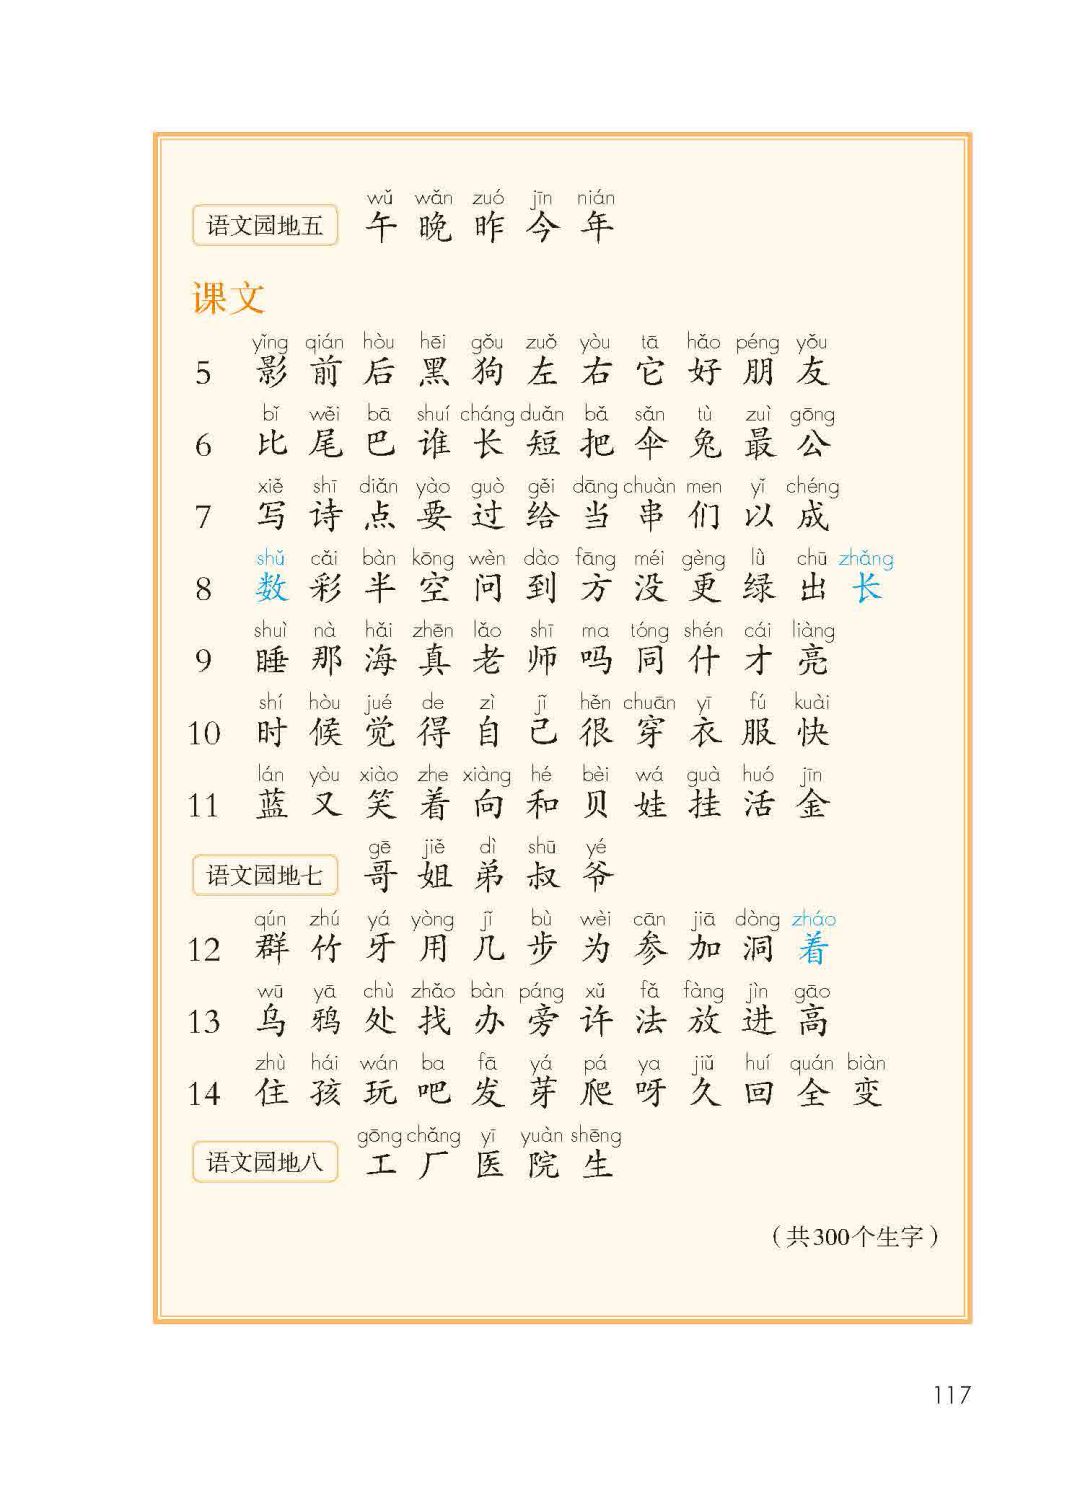 wǔ wǎn zuó jīn nián
语文园地五 午 晚 昨 今 年
课文
yǐng qián hòu hēi gǒu zuǒ yòu tā hǎo péng yǒu
5 影 前 后 黑 狗 左 右 它 好 朋 友
bǐ wěi bā shuí cháng duǎn bǎ sǎn tù zuì gōng
6 比 尾 巴 谁 长 短 把 伞 兔 最 公
xiě shī diǎn yào guò gěi dāng chuàn men yǐ chéng
7 写 诗 点 要 过 给 当 串 们 以 成
shǔ cǎi bàn kōng wèn dào fāng méi gèng lǜ chū zhǎng
8 数 彩 半 空 问 到 方 没 更 绿 出 长
shuì nà hǎi zhēn lǎo shī ma tóng shén cái liàng
9 睡 那 海 真 老 师 吗 同 什 才 亮
shí hòu jué de zì jǐ hěn chuān yī fú kuài
10 时 候 觉 得 自 己 很 穿 衣 服 快
lán yòu xiào zhe xiàng hé bèi wá guà huó jīn
11 蓝 又 笑 着 向 和 贝 娃 挂 活 金
gē jiě dì shū yé
语文园地七 哥 姐 弟 叔 爷
qún zhú yá yòng jǐ bù wèi cān jiā dòng zháo
12 群 竹 牙 用 几 步 为 参 加 洞 着
wū yā chù zhǎo bàn páng xǔ fǎ fàng jìn gāo
13 乌 鸦 处 找 办 旁 许 法 放 进 高
zhù hái wán ba fā yá pá ya jiǔ huí quán biàn
14 住 孩 玩 吧 发 芽 爬 呀 久 回 全 变
gōng chǎng yī yuàn shēng
语文园地八 工 厂 医 院 生
（共300个生字）
117